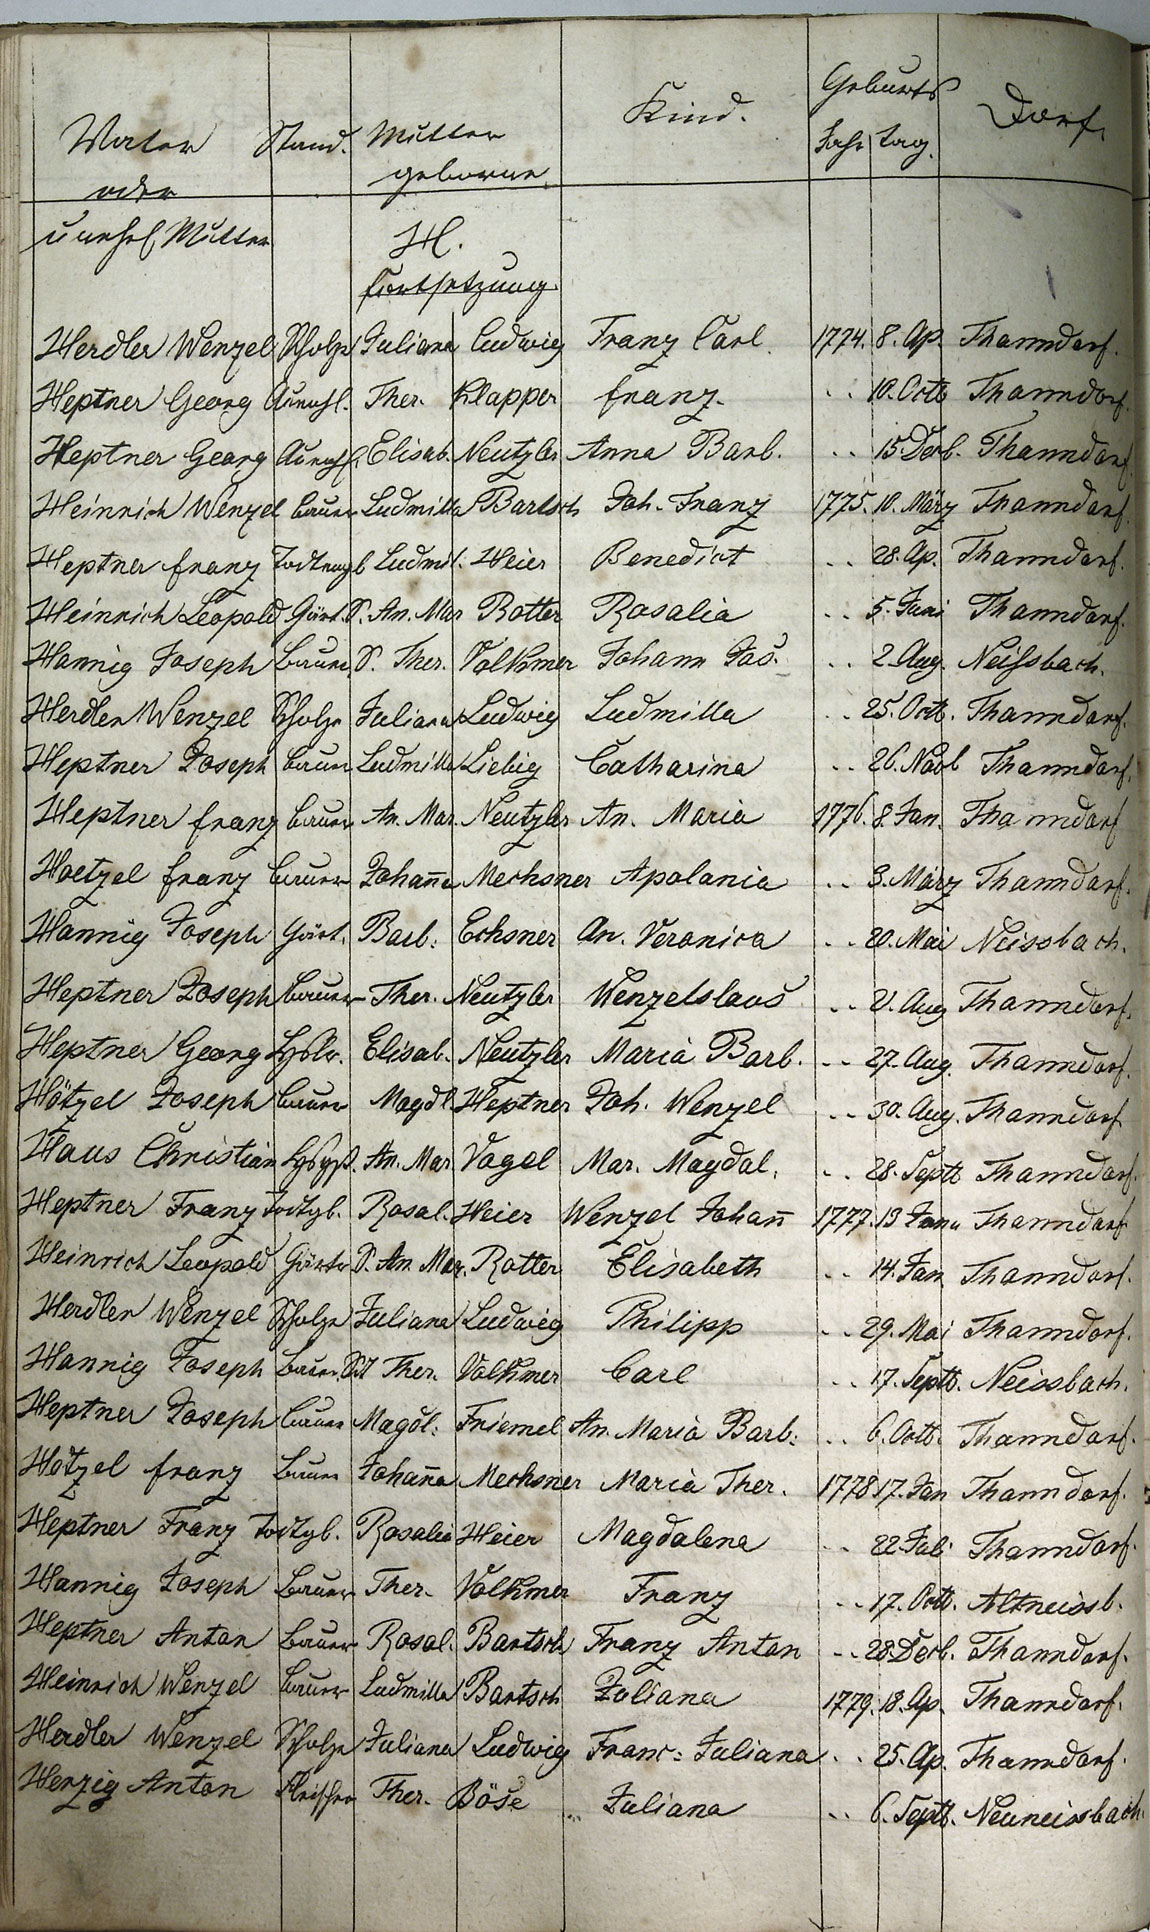 Vater Stand. Mutter Kind. Geburts Dorf.
oder geborne Jahr tag.
unehl. Mutter H.
Fortsetzung.
Herdler Wenzel Scholze Juliana Ludwig Franz Carl. 1774. 8. Ap. Thanndorf.
Heptner Georg Ther. Klapper Franz. .. 10. Octb Thanndorf.
Heptner Georg Elisab. Neutzler Anna Barb. .. 15. Decb. Thanndorf.
Heinrich Wenzel Bauer Ludmilla Bartsch Joh. Franz 1775. 10. März Thanndorf.
Heptner Franz Ludmil. Heier Benedict .. 28. Ap. Thanndorf.
Heinrich Leopold Gärt. S. An. Mar Rotter Rosalia .. 5. Juni Thanndorf.
Hannig Joseph Bauer S. Ther. Volkmer Johann Jos. .. 2. Aug. Neissbach.
Herdler Wenzel Scholze Juliana Ludwig Ludmilla .. 25. Octb. Thanndorf.
Heptner Joseph Bauer Ludmilla Liebig Catharina .. 26. Novb Thanndorf.
Heptner Franz Bauer An. Mar. Neutzler An. Maria 1776. 8. Jan. Thanndorf
Hoetzel Franz Bauer Johan̄a Mechsner Apolonia .. 3. März Thanndorf.
Hannig Joseph Gärt. Barb. Echsner An. Veronica .. 20. Mai Neissbach.
Heptner Joseph Bauer Ther. Neutzler Wenzelslaus .. 21. Aug Thanndorf.
Heptner Georg Elisab. Neutzler Maria Barb. .. 27. Aug. Thanndorf.
Hötzel Joseph Bauer Magdl. Heptner Joh. Wenzel .. 30. Aug. Thanndorf
Haus Christian An. Mar. Vogel Mar. Magdal. .. 28. Septb Thanndorf.
Heptner Franz Todtgb. Rosal. Heier Wenzel Johan̄ 1777. 13 Janu Thanndorf
Heinrich Leopold Gärtr S. An. Mar. Rotter Elisabeth .. 14. Jan Thanndorf.
Herdler Wenzel Scholze Juliana Ludwig Philipp .. 29. Mai Thanndorf.
Hannig Joseph Bauer Ther. Volkmer Carl .. 17. Septb. Neissbach.
Heptner Joseph Bauer Magdl. Friemel An. Maria Barb: .. 6. Octb. Thanndorf.
Hötzel Franz Bauer Johan̄a Mechsner Maria Ther. 1778 17. Jan Thanndorf.
Heptner Franz Todtgb. Rosalia Heier Magdalena .. 22. Juli Thanndorf.
Hannig Joseph Bauer Ther. Volkmer Franz .. 17. Octb. Altneissb.
Heptner Anton Bauer Rosal. Bartsch Franz Anton .. 28. Decb. Thanndorf.
Heinrich Wenzel Bauer Ludmilla Bartsch Juliana 1779. 18. Ap. Thanndorf.
Herdler Wenzel Scholze Juliana Ludwig Franc: Juliana .. 25. Ap. Thanndorf.
Herzig Anton Fleischer Ther. Böse Juliana .. 6. Septb. Neuneissbach.